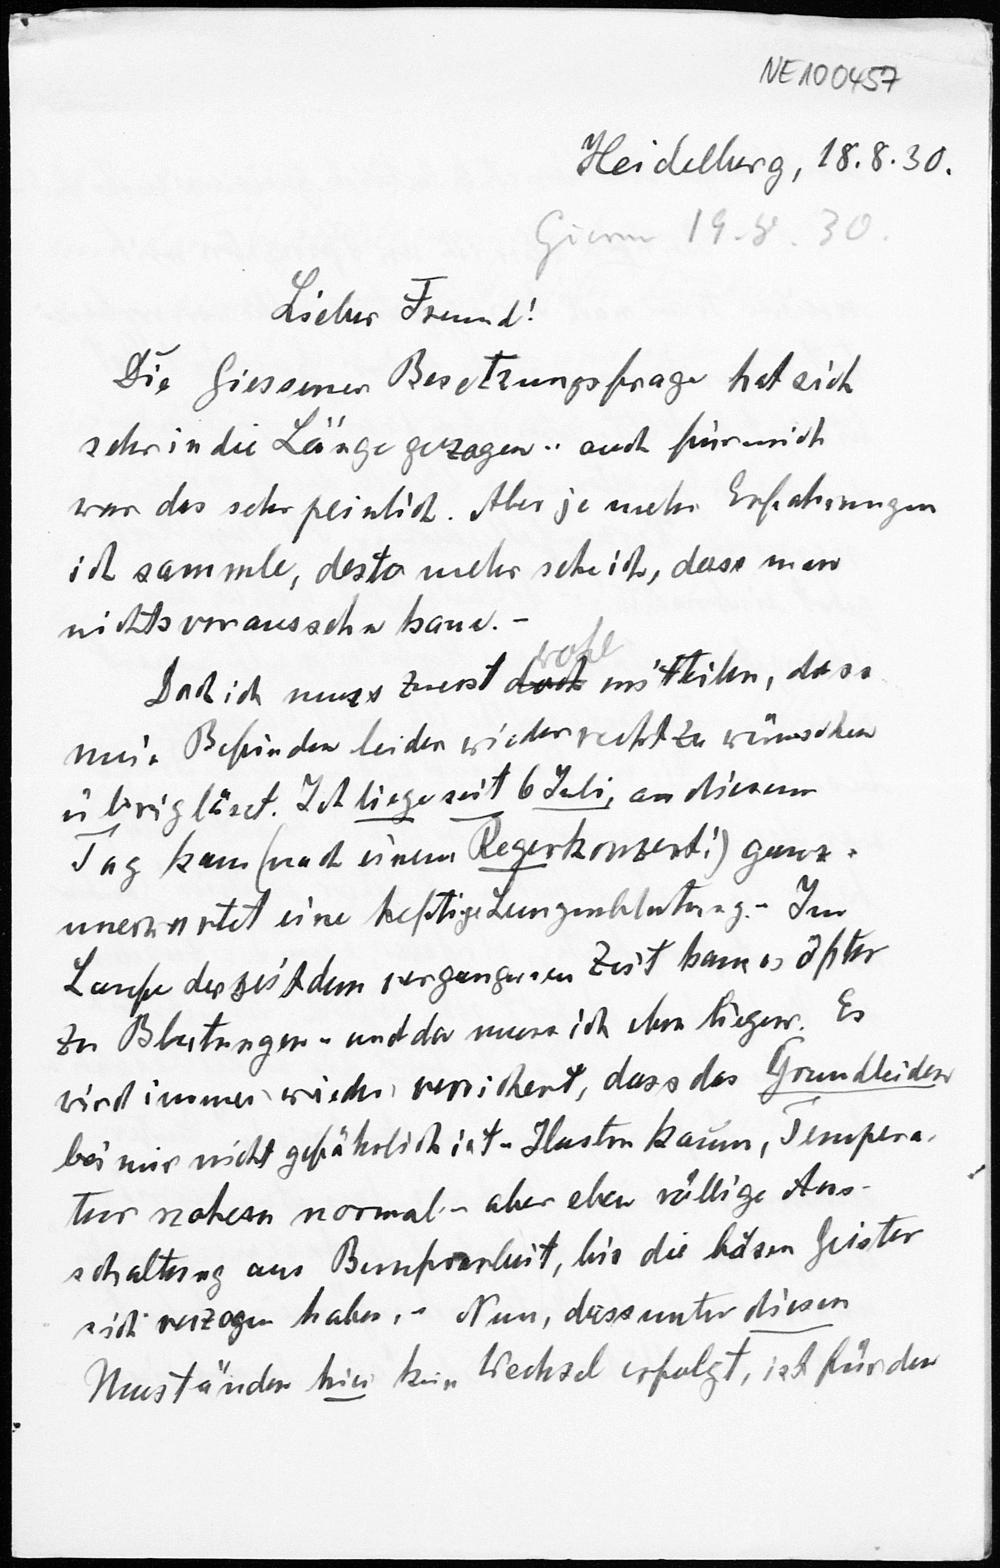 NE100457
Heidelberg, 18.8.30.
19.8.30.
Lieber Freund!
Die Giessener Besetzungsfrage hat sich
sehr in die Länge gezogen - auch für mich
war das sehr peinlich. Aber je mehr Erfahrungen
ich sammle, desto mehr sehe ich, dass man
nichts voraussehn kann. -
Doch ich muss zuerst doch wohl mitteilen, dass
mein Befinden leider wieder recht zu wünschen
übrig lässt. Ich liege seit 6 Juli, an diesem
Tag kam (nach einem Regerkonzert!) ganz
unerwartet eine heftige Lungenblutung. - Im
Laufe der seitdem vergangenen Zeit kam es öfter
zu Blutungen - und da muss ich eben liegen. Es
wird immer wieder versichert, dass das Grundleiden
bei mir nicht gefährlich ist - Husten kaum, Tempera-
tur nahezu normal - aber eben völlige Aus-
schaltung aus Berufsarbeit, bis die bösen Geister
sich verzogen haben. - Nun, dass unter diesen
Umständen hier kein Wechsel erfolgt, ist für den